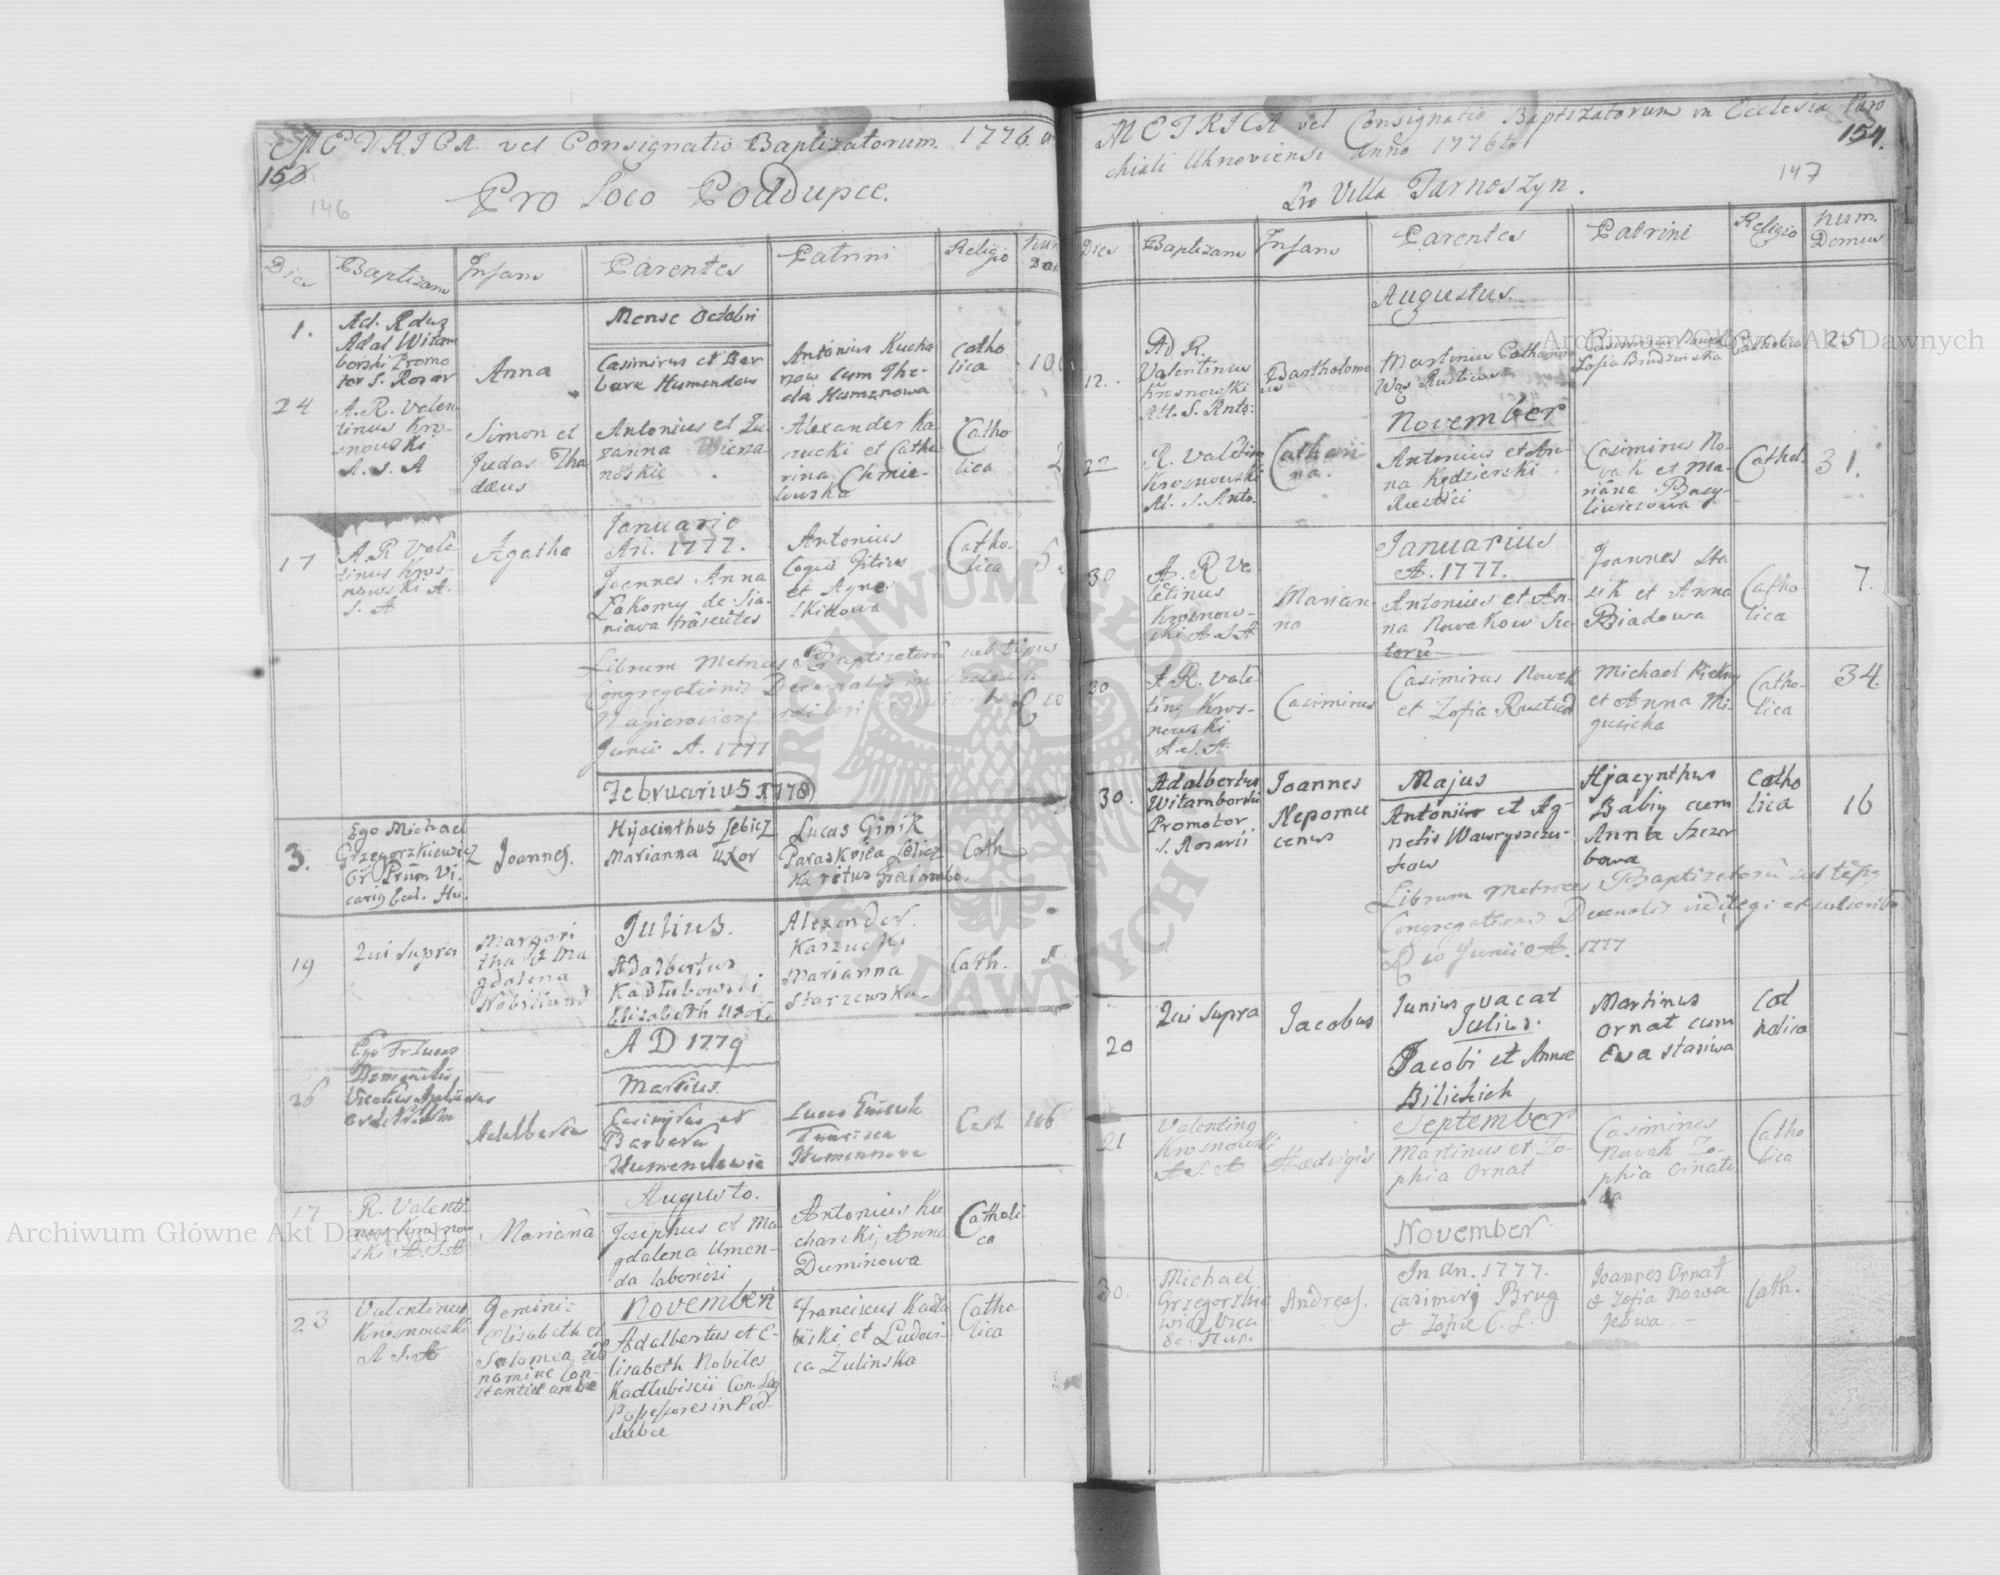 METRICA vel Consignatio Baptizatorum 1776
153
146
Pro Loco Poddupce.
Dies Baptizans Infans Parentes Patrini Religio Num Dom
Mense Octobri
1.
Ad. Rdus
Adal Witam
borski Promo
tor S. Rosar
Anna
Casimirus et Bar
bara Humendow
Antonius Kucha
rzow cum The-
cla Humenowa
Catho
lica
10
24
A. R. Valen
tinus Kro-
snowski
A. S. A
Simon et
Judas Tha
daeus
Antonius et Zu
zanna Wierza
noskie
Alexander Ka
szucki et Catha
rina Chmie-
lowska
Catho
lica
2
Januario
An. 1777.
17
A. R Vale
tinus Kros-
nowski A.
S. A
Agatha
Joannes Anna
Lakomy de Sia-
niava transeutes
Antonius
et Agne
skikowa
Catho-
lica
Librum Metrices Baptizatorū sub tépus
Congregationis Decanalis in
Junii A. 1777
Februarius 1778
3.
Ego Michael
Grzegorzkiewicz
Or Prum Vi-
cariq Ecl. Hu.
Joannes.
Hijacinthus Lebicz
Marianna uxor
Lucas Ginik
Paraskviea Lebicz
ka ritus Graei ambo.
Cath
Julius.
19
Qui Supra
Margari
tha et Ma
gdalena
Nobilium
Adalbertus
Kadłubowski
Elisabeth Uxor
Alexander
Kaszucki
Marianna
Starzewska-
Cath.
A D 1779
Martius.
26
Ego Fr Lucas
Adalberta
Casimirus et
Barbara
Humendowie
Francisca
Humennova
Cath
106
Augusto.
17
R. Valenti
nus Krosnow
ski A. S. A
Mariana
Josephus et Ma
gdalena Umen-
da laboriosi
Antonius Ku
charski, Anna
Duminowa
Catholi
ca
Novembri
23
Valentinus
Krosnowski
A S. A
Gemini:
Elisabeth et
Salomea
nomine Con-
stantiae ambe
Adalbertus et E-
lisabeth Nobiles
Kadłubiscii Con. Leg
Possessores in Pod-
dubce
Franciscus Kadłu
biski et Ludovi-
ca Zulinska
Catho-
lica
METRICA vel Consignatio Baptizatorum in Ecclesia Paro
154.
chiali Uhnoviensi Anno 1776to
147
Pro Villa Tarnoszyn.
Dies Baptizans Infans Parentes Patrini Religio Num. Domus
Augustus.
12.
AD R.
Valentinus
Krosnowski
Alt. S. Anto:
Bartholome
us
Martinus Catharina
Wąs Rustici
Zofia Brudzinska
Catholica
25
November
R. Valetin
Krosnowski
Al. S. Anto.
Cathari-
na.
Antonius et An-
na Kędzierski
Rustici
Casimirus No-
vak et Ma-
riana Basy-
liwiczowa
Cathol.
31.
Januarius
A. 1777.
30
A. R Va
letinus
Krosnow-
ski A S. A
Marian-
na
Antonius et An-
na Nowakow Su-
torū
Joannes Sta
sik et Anna
Biadowa
Catho-
lica
7.
30
A. R. Vale
tinq Kros-
nowski
A. S. A
Casimirus
Casimirus Nowak
et Zofia Rustici
Michael
et Anna Mi-
gusicka
Catho-
lica
34.
30.
Adalbertus
Witamborski
Promotor
S. Rosarii
Joannes
Nepomu
cenus
Majus
Antonius et Ag-
netis Wawryszczu-
kow
Hyacynthus
Babiy cum
Anna Szczer
bowa
Catho
lica
16
Librum Metrices Baptizatorū sub tépq
Congregationis Decanalis vidi, legi et subscribo
D 10 Junii A. 1777
Junius vacat
Julius.
20
Qui Supra
Jacobus
Jacobi et Annae
Bilickich
Martinus
Ornat cum
Eva Stasiwa
Cat
holica
September
21
Valentinq
Krosnowski
A. S. A
Hedvigis
Martinus et Zo-
phia Ornat
Casimirus
Novak Zo-
phia Ornato
wa
Catho
lica
November
30.
Michael
Grzegorzkie
wicz Vica
Ec. Hun.
Andreas.
In An. 1777.
Casimirq Brug
& Zofia C. L.
Joannes Ornat
& Zofia Nowa
kowa -
Cath.
Archiwum Główne Akt Dawnych
Archiwum Główne Akt Dawnych
ARCHIWUM GŁÓWNE AKT DAWNYCH